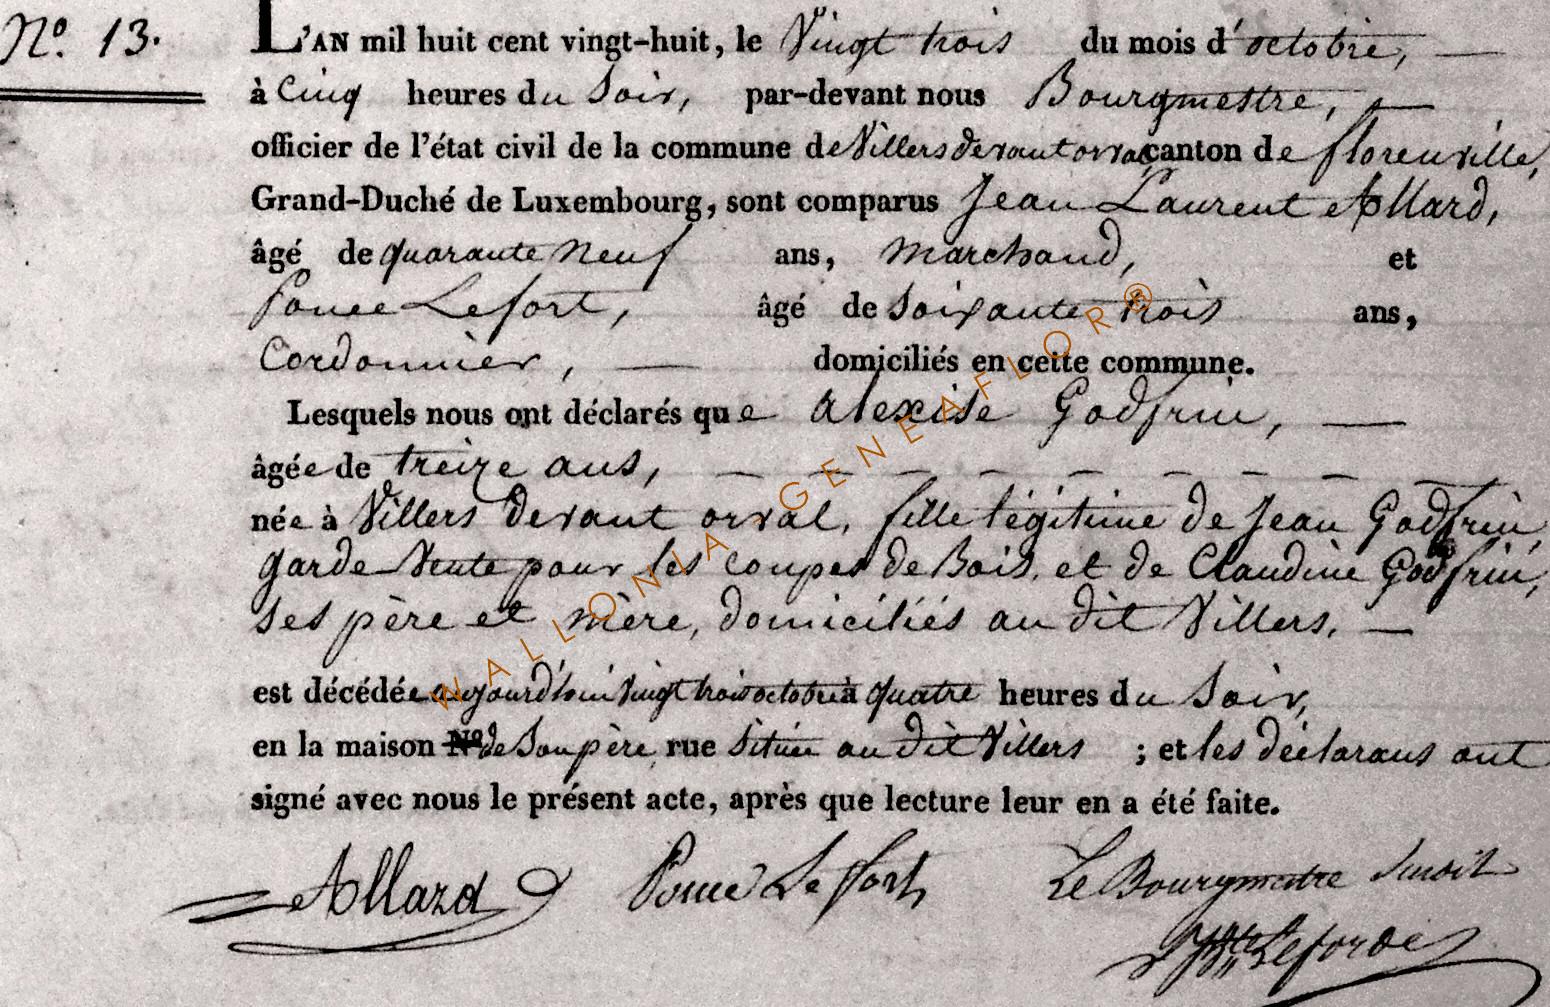 N.º 13.
L'AN mil huit cent vingt-huit, le Vingt trois du mois d'octobre,
à Cinq heures du Soir, par-devant nous Bourgmestre,
officier de l'état civil de la commune de Villers devant orval canton de florenville,
Grand-Duché de Luxembourg, sont comparus Jean Laurent Allard,
âgé de quarante neuf ans, marchand, et
Ponce Lefort, âgé de Soixante trois ans,
Cordonnier, domiciliés en cette commune.
Lesquels nous ont déclarés que alexise Godfrin,
âgée de treize ans,
née à Villers devant orval, fille légitime de Jean Godfrin,
garde Vente pour les coupes de Bois, et de Claudine Godfrin,
ses père et mère, domiciliés au dit Villers.
est décédée aujourd'hui Vingt trois octobre à quatre heures du Soir,
en la maison Nº de Son père, rue Située au dit Villers ; et les déclarans ont
signé avec nous le présent acte, après que lecture leur en a été faite.
Allard Ponce Lefort Le Bourgmestre
WALLONIA - GENEAFLOR®